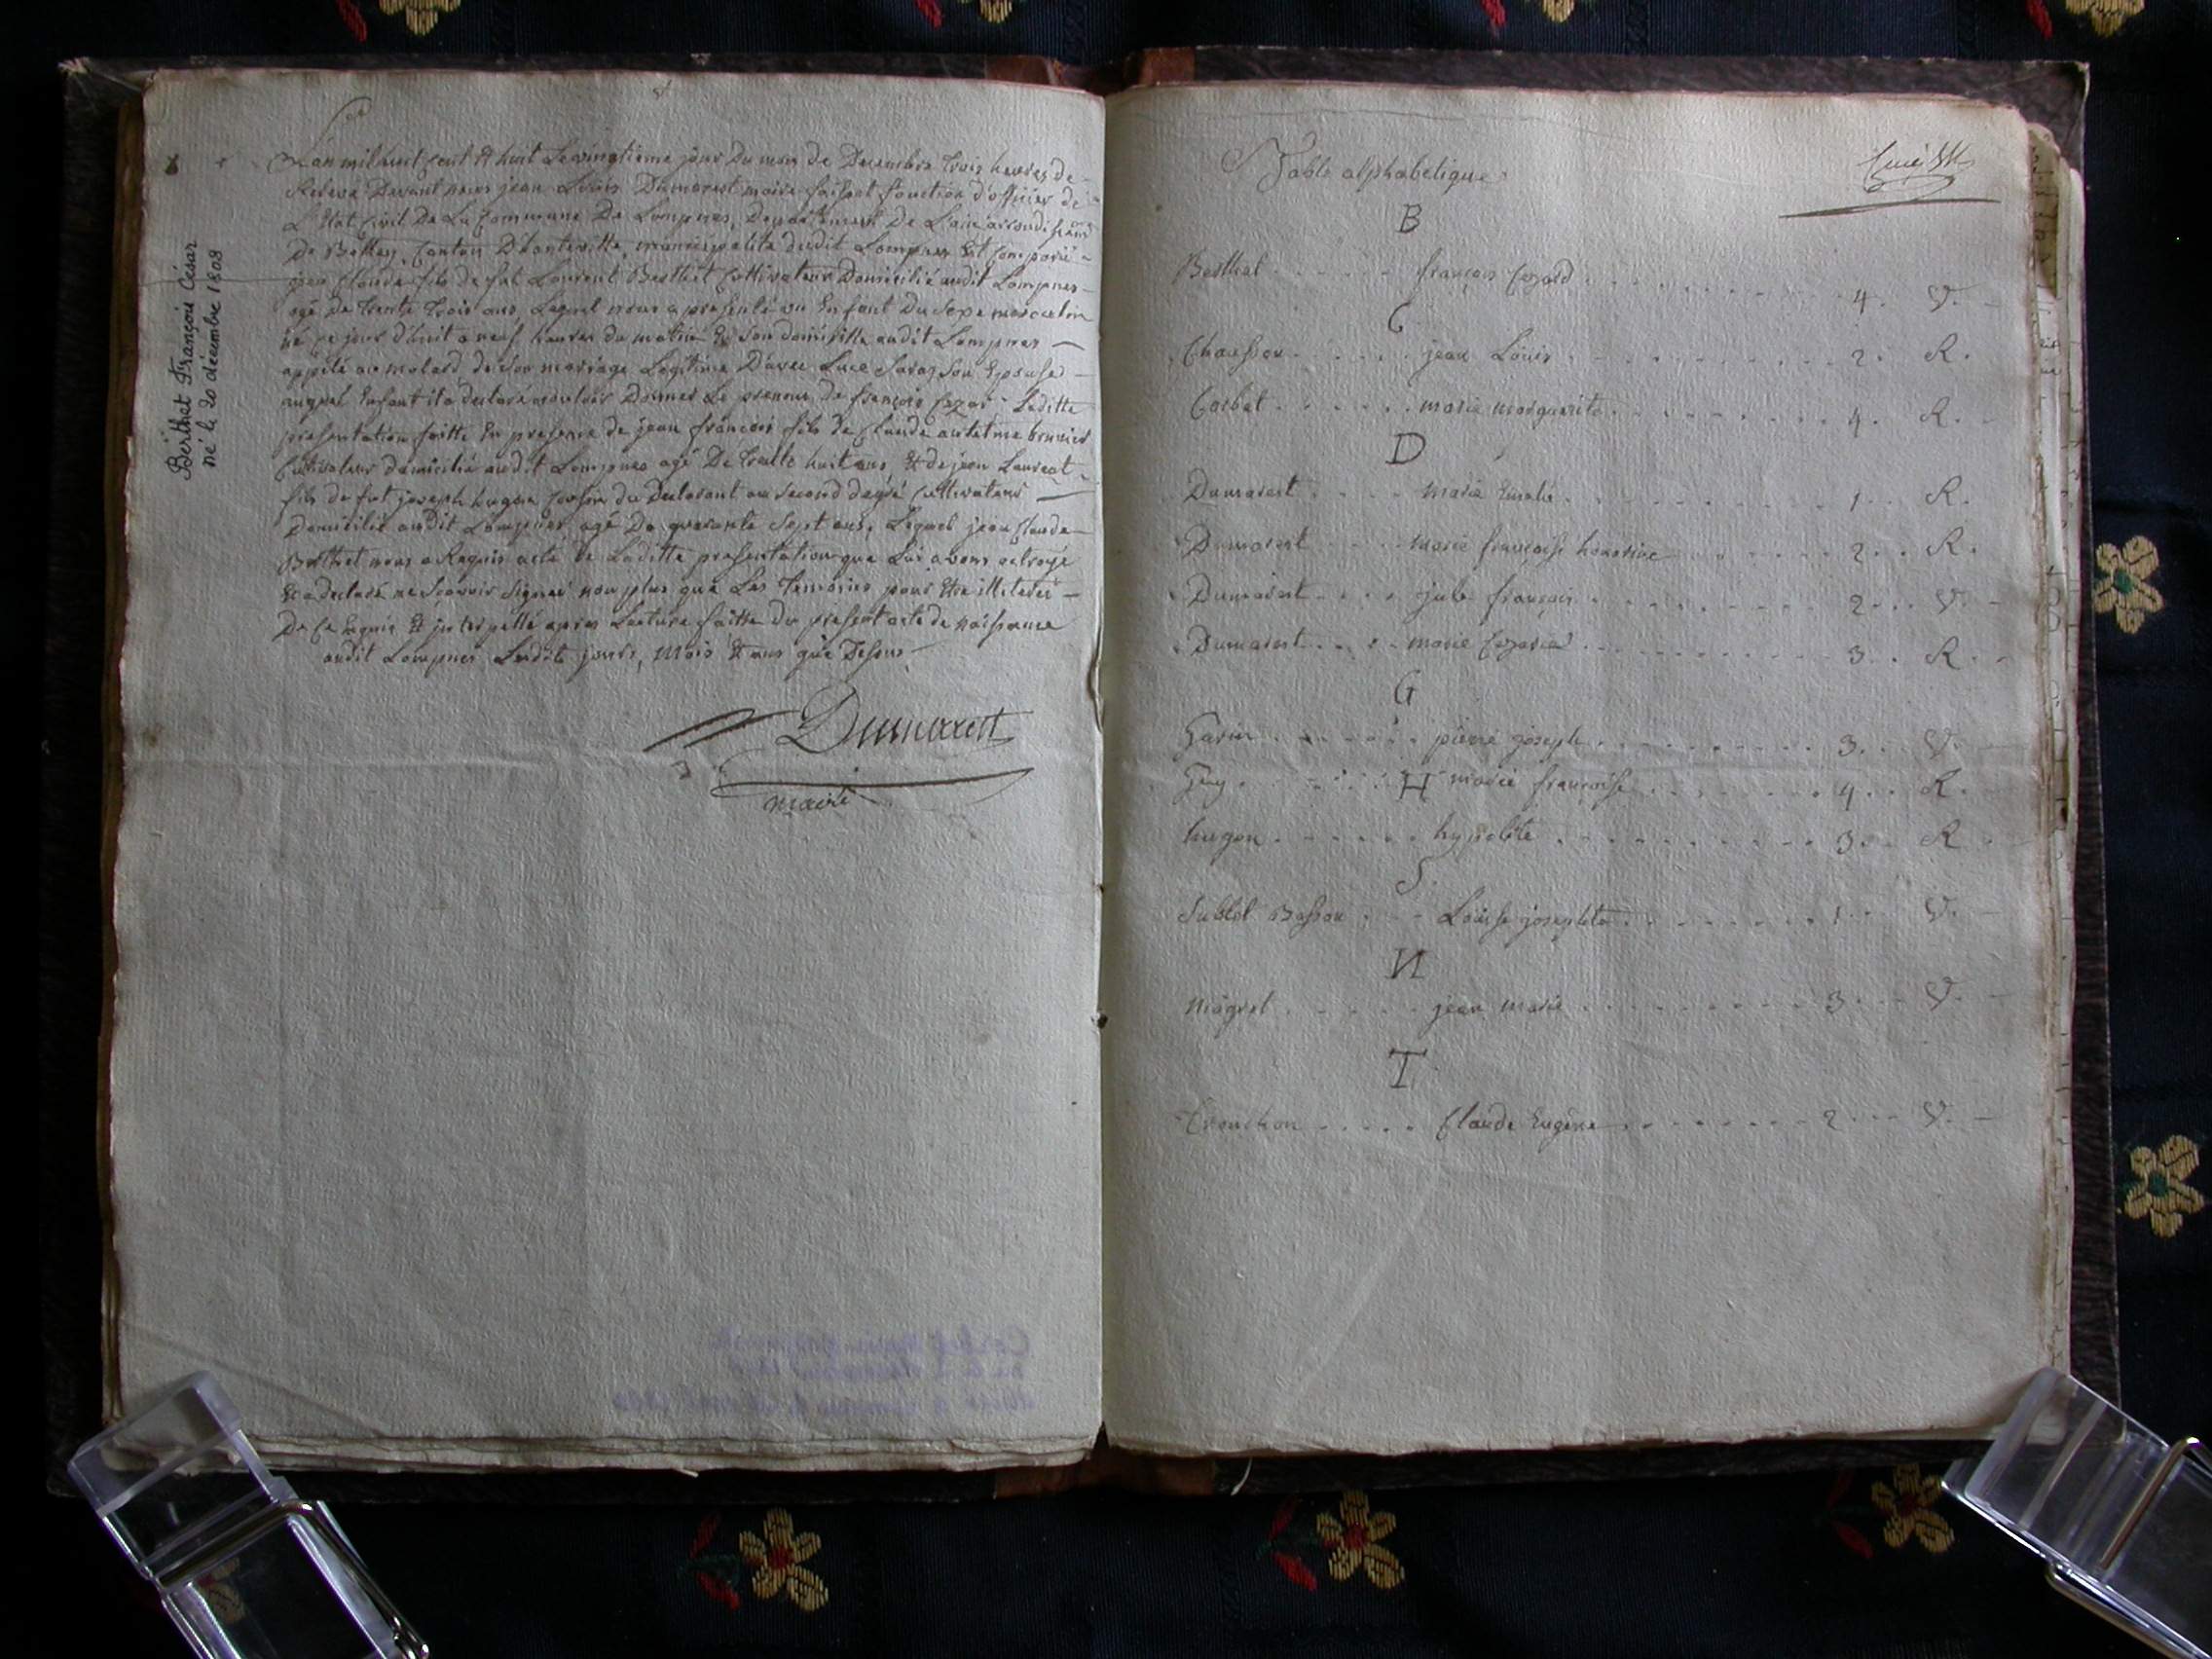 Berthet François César
né le 20 décembre 1808
L'an mil huit cent et huit Le vingtieme jour Du mois de Decembre trois heures de
Relevé Devant nous jean Louis Dumarest maire faisant fonction d'officier de
L'Etat Civil De La Commune De Lompnes, Departement De L'ain arrondissem
De Belley, Canton D'hauteville, municipalité dudit Lompnes Est Comparu
jean Claude fils de fut Laurent Berthet Cultivateur Domicilié audit Lompnes
agé De trente trois ans, Lequel nous a presenté un Enfant Du Sexe masculin
né ce jour d'huit a neuf heures du matin En Son domicille audit Lompnes
appelé au molard de Son mariage Legitime D'avec Luce Savaz Son Epouse
auquel Enfant il a declaré vouloir Donner Le prenom de françois Cezar Laditte
presentation faitte En presence de jean françois fils de Claude antelme brunier
Cultivateur domicilié audit Lompnes agé De trente huit ans, Et de jean Laurent
fils de fut joseph hugon Cousin du Declarant au Second degré Cultivateur
Domicilié audit Lompnes agé De quarante Sept ans, Lequel jean Claude
Berthet nous a Requis acte de Laditte presentation que Lui avons octroyé
Et a declaré ne Scavoir Signer non plus que Les temoins pour Etre illiterés
De Ce Enquis Et interpellé apres Lecture faitte du present acte de naissance
audit Lompnes Lesdits jours, Mois Et ans que Dessus
Dumarest
maire
Table alphabetique
B
Berthet françois Cezard 4. V.
C
Chausson jean Louis 2. R.
Corbet marie marguerite 4. R.
D
Dumarest Marie Emelie 1. R.
Dumarest Marie françoise honorine 2. R.
Dumarest jule françois 2. V.
Dumarest marie Cezarie 3. R.
G
Garin pierre joseph 3. V.
Guy marie françoise 4. R.
H
hugon hypolite 3. R
S
Sublet Bosson Louise josephte 1. V.
N
Niogret jean marie 3. V.
T
Tronchon Claude Eugene 2. V.